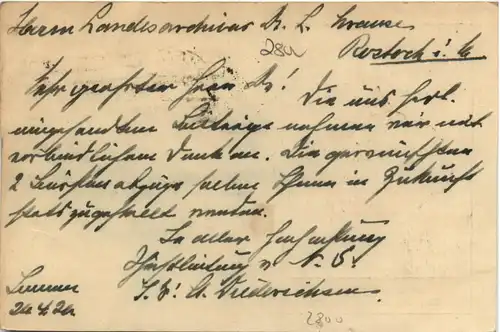 Herrn Landesarchivar Dr. L. Krause
280
Rostock i. M
Sehr geehrter Herr Dr!
Die uns frdl.
eingesandten Beiträge nehmen wir mit
verbindlichem Dank an. Die gewünschten
2 Bürstenabzüge sollen Ihnen in Zukunft
stets zugestellt werden.
In aller Hochachtung
Schriftleitung N. S.
I. V. Diederichsen
2800